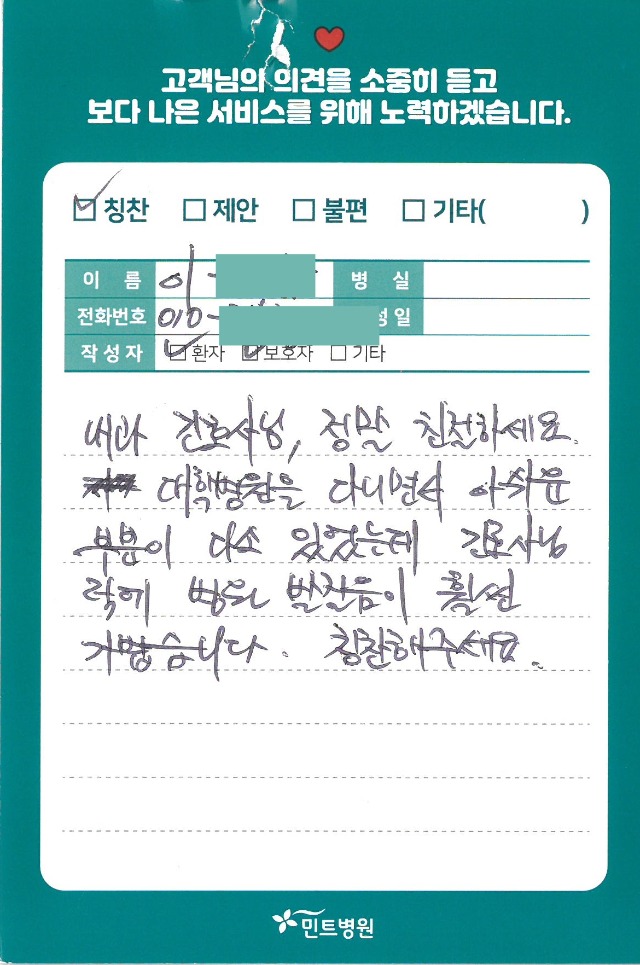 고객님의 의견을 소중히 듣고
보다 나은 서비스를 위해 노력하겠습니다.
칭찬 제안 불편 기타( )
이 름 이 병 실
전화번호 010- 성일
작성자 환자 보호자 기타
내과 간호사님, 정말 친절하세요.
대학병원을 다니면서 아쉬운
부분이 다소 있었는데 간호사님
덕에 병원 발걸음이 훨씬
가볍습니다. 칭찬해주세요.
민트병원